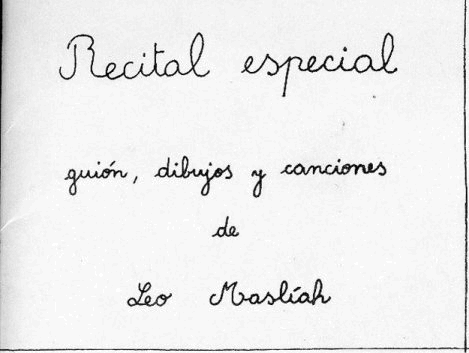 Recital especial
guión, dibujos y canciones
de
Leo Maslíah